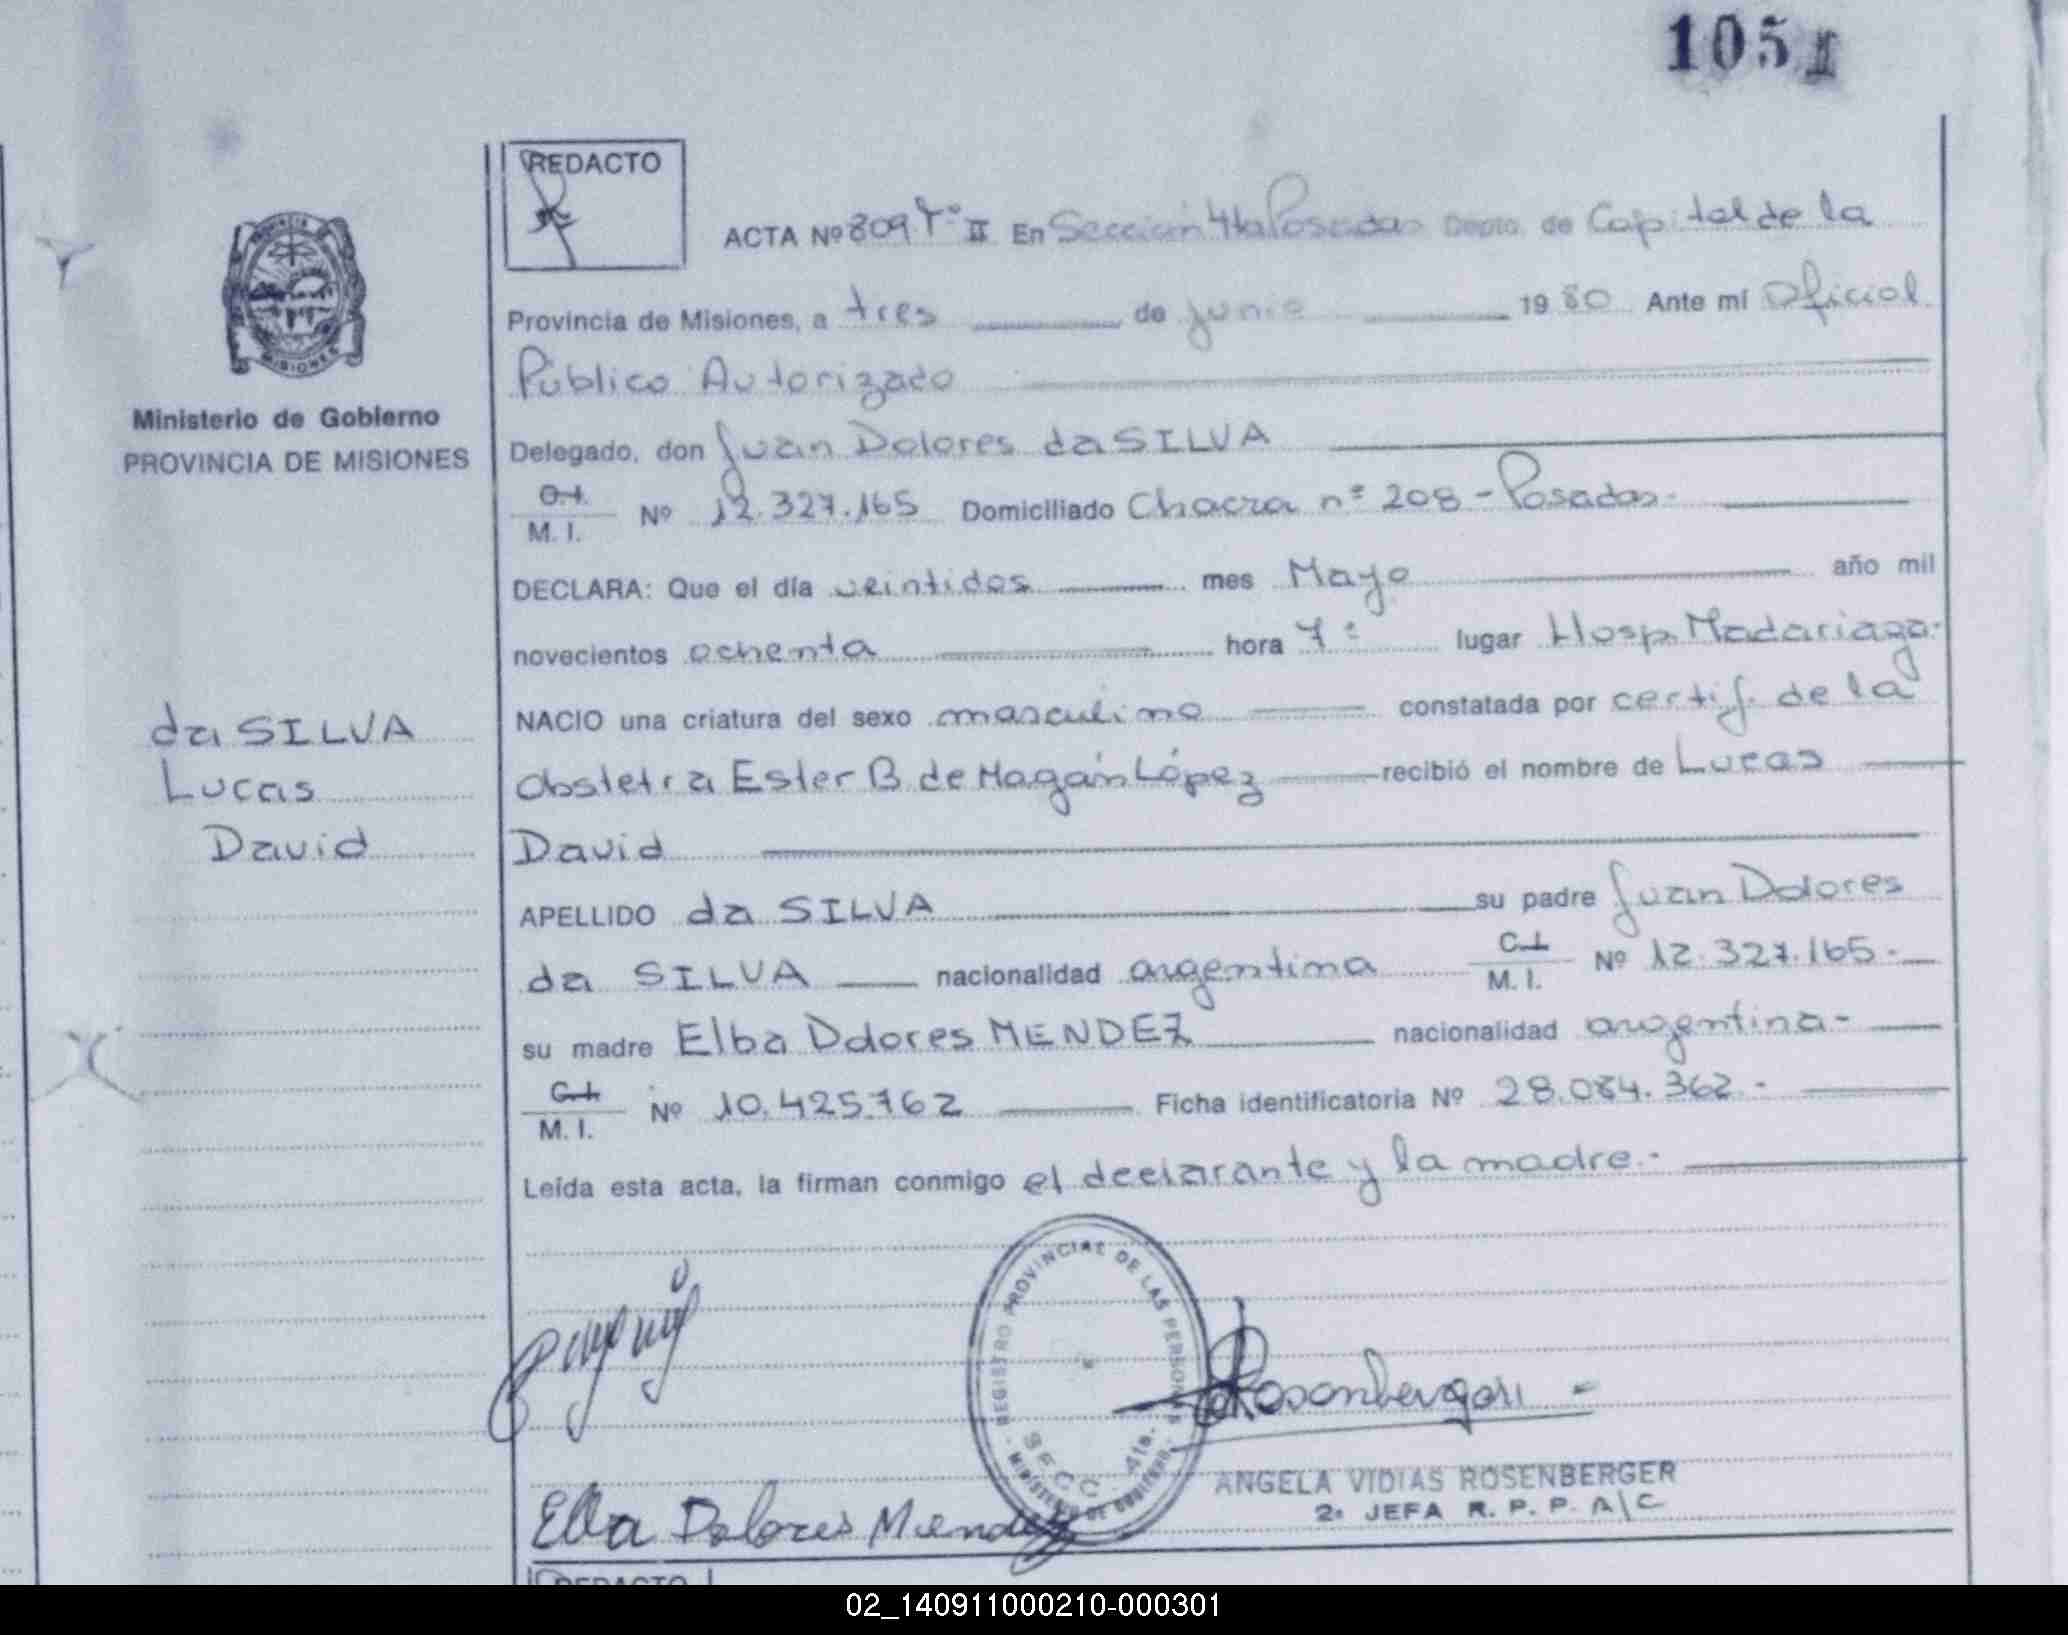 1051
REDACTO
ACTA Nº 809 Tº II En Sección 4ta Posadas Depto. de Capital de la
Provincia de Misiones, a tres de junio 1980 Ante mí Oficial
Público Autorizado
Ministerio de Gobierno
PROVINCIA DE MISIONES
Delegado, don Juan Dolores da SILVA
C.I.
M. I. Nº 12.327.165 Domiciliado Chacra nº 208 - Posadas.
DECLARA: Que el día veintidos mes Mayo año mil
novecientos ochenta hora 7ª lugar Hosp. Madariaga.
da SILVA
Lucas
David
NACIO una criatura del sexo masculino constatada por certif. de la
Obstetra Ester B. de Magán López recibió el nombre de Lucas
David
APELLIDO da SILVA su padre Juan Dolores
da SILVA nacionalidad argentina C.I. M. I. Nº 12.327.165.-
su madre Elba Dolores MENDEZ nacionalidad argentina-
C.I.
M. I. Nº 10.425.762 Ficha identificatoria Nº 28.084.362.-
Leída esta acta, la firman conmigo el declarante y la madre.-
REGISTRO PROVINCIAL DE LAS PERSONAS
SECC. 4ta.
MINISTERIO DE GOBIERNO
Rosenberger
ANGELA VIDIAS ROSENBERGER
2ª JEFA R. P. P. A/C
Elba Dolores Mendez
REDACTO
02_140911000210-000301